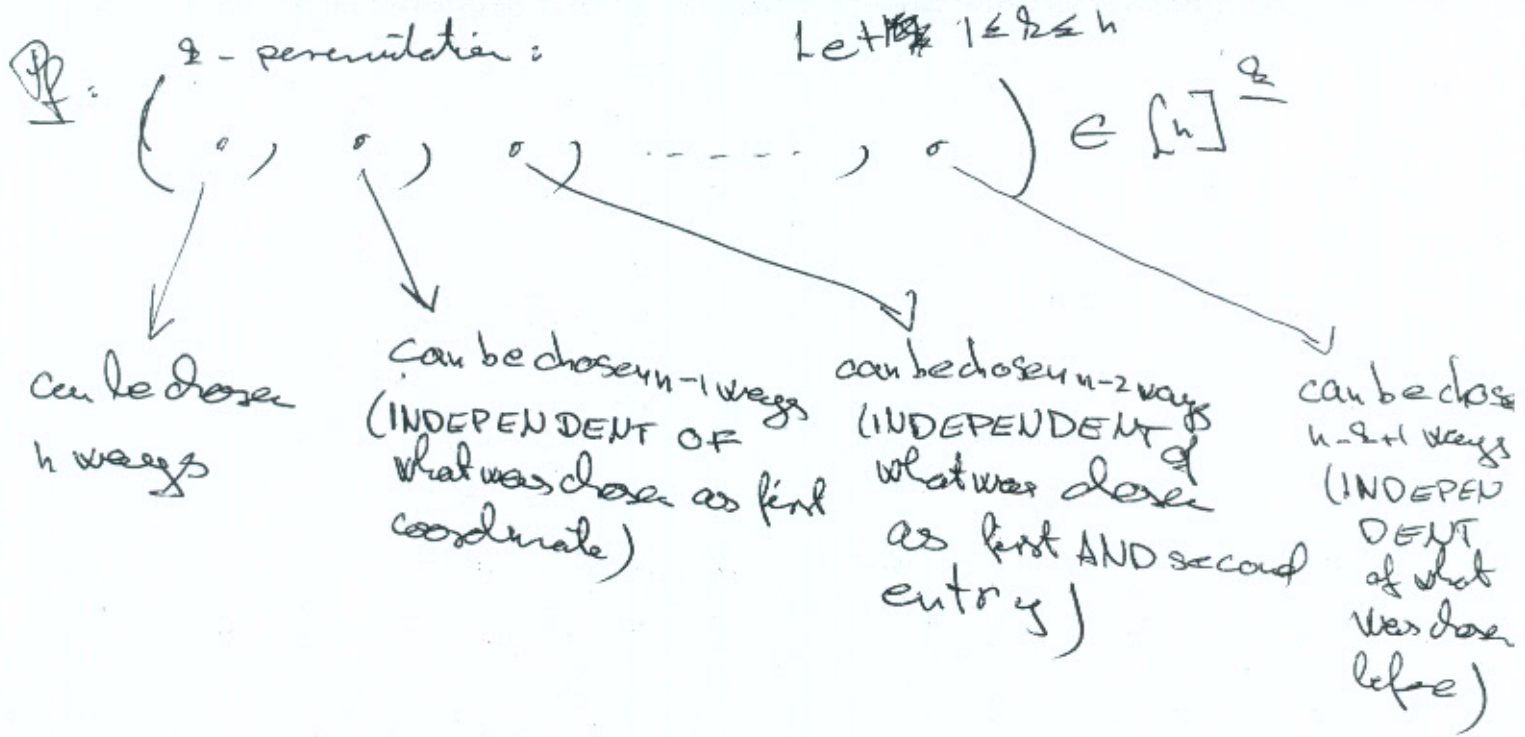 Pf: k-permutation: Let 1≤k≤n
( · , · , · , ------ , · ) ∈ [n]^k
can be chosen
n ways
can be chosen n-1 ways
(INDEPENDENT OF
what was chosen as first
coordinate)
can be chosen n-2 ways
(INDEPENDENT of
what was chosen
as first AND second
entry)
can be chose
n-k+1 ways
(INDEPEN
DENT
of what
was chosen
before)